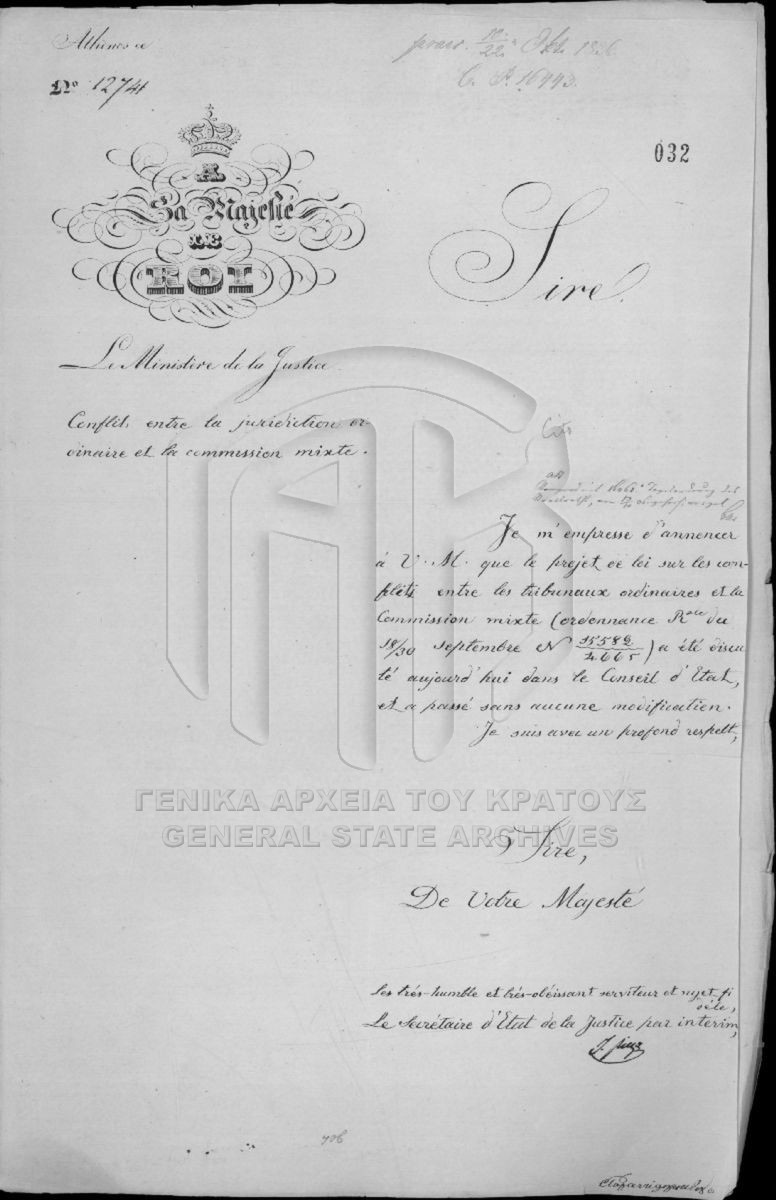 Athènes ce
No 1274
praes. 10/22 Okt. 1836
C. P. 16443.
032
A
Sa Majesté
LE
ROI
Sire.
Le Ministère de la Justice
Conflits entre la juridiction or-
dinaire et la commission mixte.
Je m'empresse d'annoncer
à V. M. que le projet de loi sur les con-
flits entre les tribunaux ordinaires et la
Commission mixte (ordonnance Rale du
18/30 septembre No 15582/4665) a été discu
té aujourd'hui dans le Conseil d'Etat,
et a passé sans aucune modification.
Je suis avec un profond respect,
ΓΕΝΙΚΑ ΑΡΧΕΙΑ ΤΟΥ ΚΡΑΤΟΥΣ
GENERAL STATE ARCHIVES
Sire,
De Votre Majesté
Les très-humble et très-obéissant serviteur et sujet fi
dèle,
Le Secrétaire d'Etat de la Justice par interim,